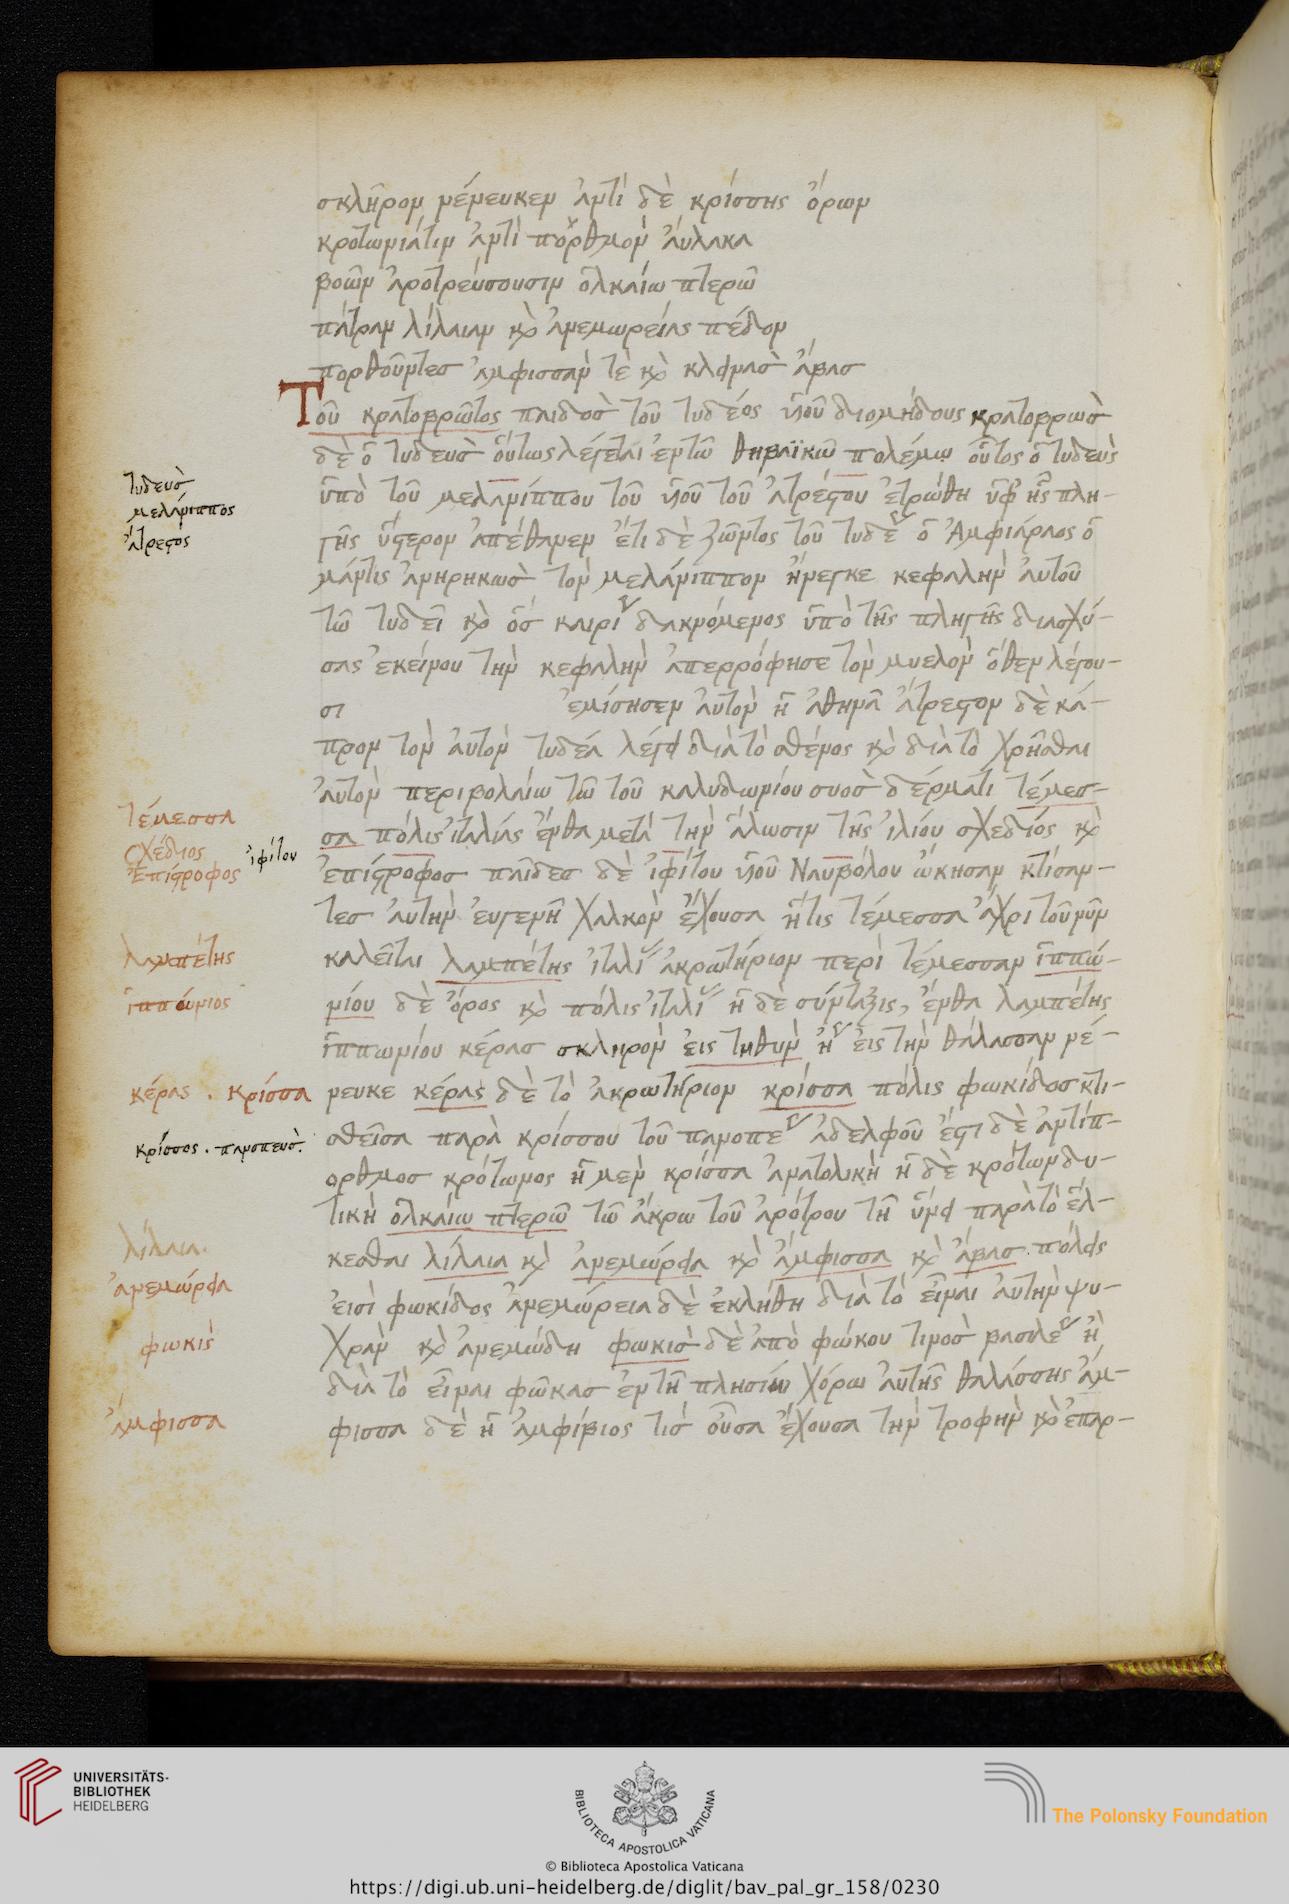 σκληρὸν νένευκεν ἀντὶ δὲ κρίσσης ὅρων
κροτωνιάτιν ἀντὶ πορθμὸν αὔλακα
βοῶν ἀροτρεύσουσιν ὁλκαίω πτερῶ
πάτραν λίλαιαν καὶ ἀνεμωρείας πέδον
πορθοῦντες ἄμφισσαν τὲ καὶ κλεινὰσ ἄβασ
Τοῦ κρατοβρῶτος παιδὸσ τοῦ τυδέος υἱοῦ διομήδους κρατοβρωσ
δὲ ὁ τυδεὺσ οὕτως λέγεται ἐν τῶ θηβαϊκῶ πολέμω οὗτος ὁ τυδεὺς
ὑπὸ τοῦ μελανίππου τοῦ υἱοῦ τοῦ ἀτρέστου ἐτρώθη ὑφ' ἧς πλη-
γῆς ὕστερον ἀπέθανεν ἔτι δὲ ζῶντος τοῦ τυδέως ὁ Ἀμφιάραος ὁ
μάντις ἀνηρηκὼσ τὸν μελάνιππον ἤνεγκε κεφαλὴν αὐτοῦ
τῶ τυδεῖ καὶ ὃσ καιρίως δακνόμενος ὑπὸ τῆς πληγῆς διασχί-
σας ἐκείνου τὴν κεφαλὴν ἀπερρόφησε τὸν μυελὸν ὅθεν λέγου-
σι ἐμίσησεν αὐτὸν ἡ ἀθηνᾶ ἄτρεστον δὲ κά-
προν τὸν αὐτὸν τυδέα λέγει διὰ τὸ σθένος καὶ διὰ τὸ χρῆσθαι
αὐτὸν περιβολαίω τῶ τοῦ καλυδωνίου συοσ δέρματι τέμεσ-
σα πόλις ἰταλίας ἔνθα μετὰ τὴν ἅλωσιν τῆς ἰλίου σχεδίος καὶ
ἐπίστροφοσ παῖδεσ δὲ ἰφίτου υἱοῦ Ναυβόλου ὤκησαν κτίσαν-
τεσ αὐτὴν εὐγενῆ χαλκὸν ἔχουσα ἥτις τέμεσσα ἄχρι τοῦ νῦν
καλεῖται λαμπέτης ἰταλίας ἀκρωτήριον περὶ τέμεσσαν ἱππω-
νίου δὲ ὄρος καὶ πόλις ἰταλίας ἡ δὲ σύνταξις, ἔνθα λαμπέτης
ἱππωνίου κέρασ σκληρὸν εἰς τηθὺν ἤγουν εἰς τὴν θάλασσαν νέ-
νευκε κέρας δὲ τὸ ἀκρωτήριον κρίσσα πόλις φωκίδοσ κτι-
σθεῖσα παρὰ κρίσσου τοῦ πανοπέως ἀδελφοῦ ἔστι δὲ ἀντίπ-
ορθμοσ κρότωνος ἡ μὲν κρίσσα ἀνατολικὴ ἡ δὲ κρότων δυ-
τικὴ ὁλκαίω πτερῶ τῶ ἄκρω τοῦ ἀρότρου τῆ ὕνει παρὰ τὸ ἕλ-
κεσθαι λίλαια καὶ ἀνεμώρεια καὶ ἄμφισσα καὶ ἄβασ. πόλεις
εἰσὶ φωκίδος ἀνεμώρεια δὲ ἐκλήθη διὰ τὸ εἶναι αὐτὴν ψυ-
χρὰν καὶ ἀνεμώδη φωκὶσ δὲ ἀπὸ φώκου τινοσ βασιλέως ἢ
διὰ τὸ εἶναι φῶκασ ἐν τῆ πλησίον χόρω αὐτῆς θαλάσσης ἄμ-
φισσα δὲ ἡ ἀμφίβιος τισ οὖσα ἔχουσα τὴν τροφὴν καὶ ἐπαρ-
τυδευσ
μελάνιππος
ἄτρεστος
τέμεσσα
σχέδιος
Ἐπίστροφος
ἰφίτου
λαμπέτης
ἱππώνιος
κέρας . κρίσσα
κρίσσος . πανοπευσ.
λίλαια.
ἀνεμώρεια
φωκις
ἄμφισσα
UNIVERSITÄTS-
BIBLIOTHEK
HEIDELBERG
BIBLIOTHECA APOSTOLICA VATICANA
The Polonsky Foundation
© Biblioteca Apostolica Vaticana
https://digi.ub.uni-heidelberg.de/diglit/bav_pal_gr_158/0230